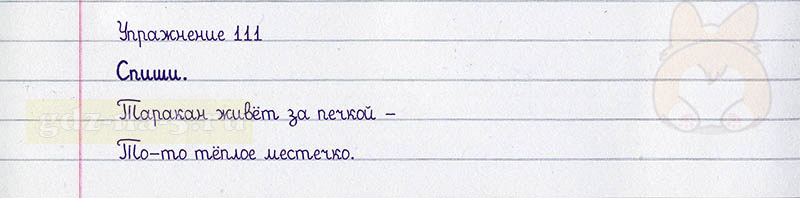 Упражнение 111
Спиши.
Таракан живёт за печкой –
То-то тёплое местечко.
gdz-na-5.ru